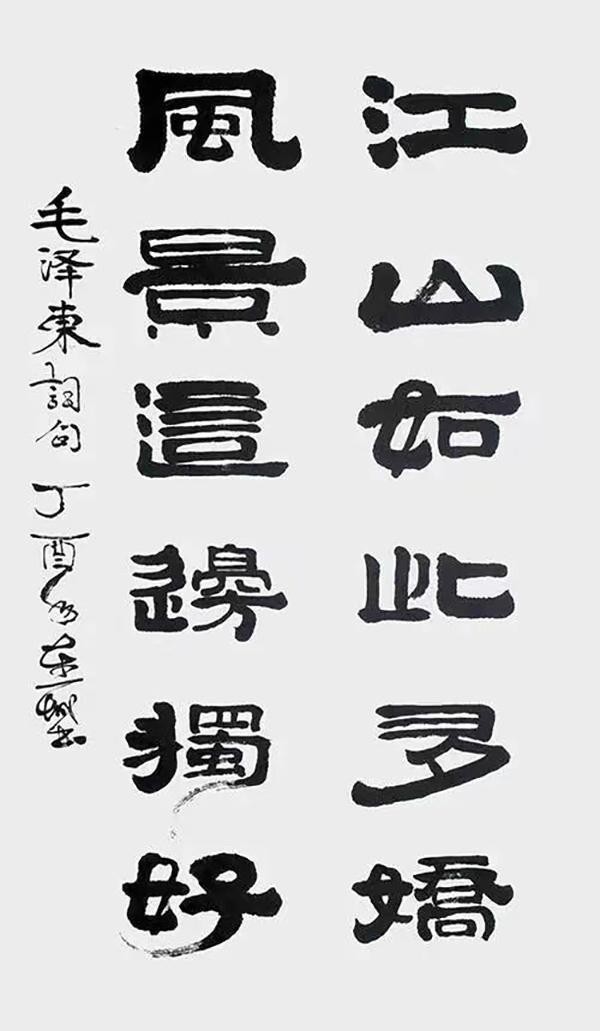 江山如此多嬌
風景這邊獨好
毛泽東詞句丁酉